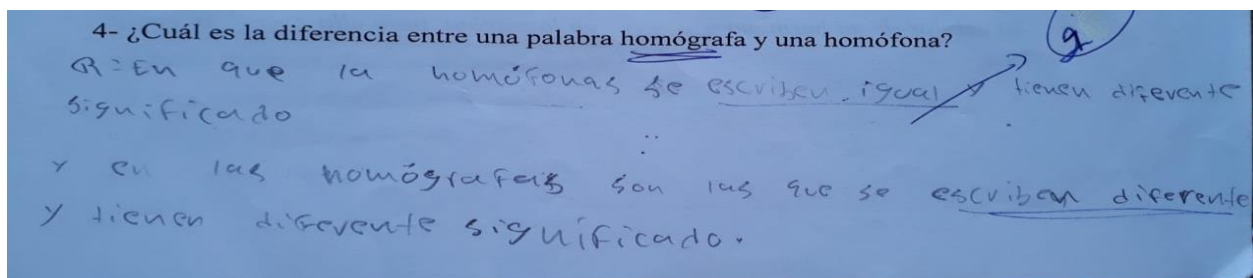 4- ¿Cuál es la diferencia entre una palabra homógrafa y una homófona?
R= En que la homófonas se escriben igual y tienen diferente
significado
y en las homógrafas son las que se escriben diferente
y tienen diferente significado.